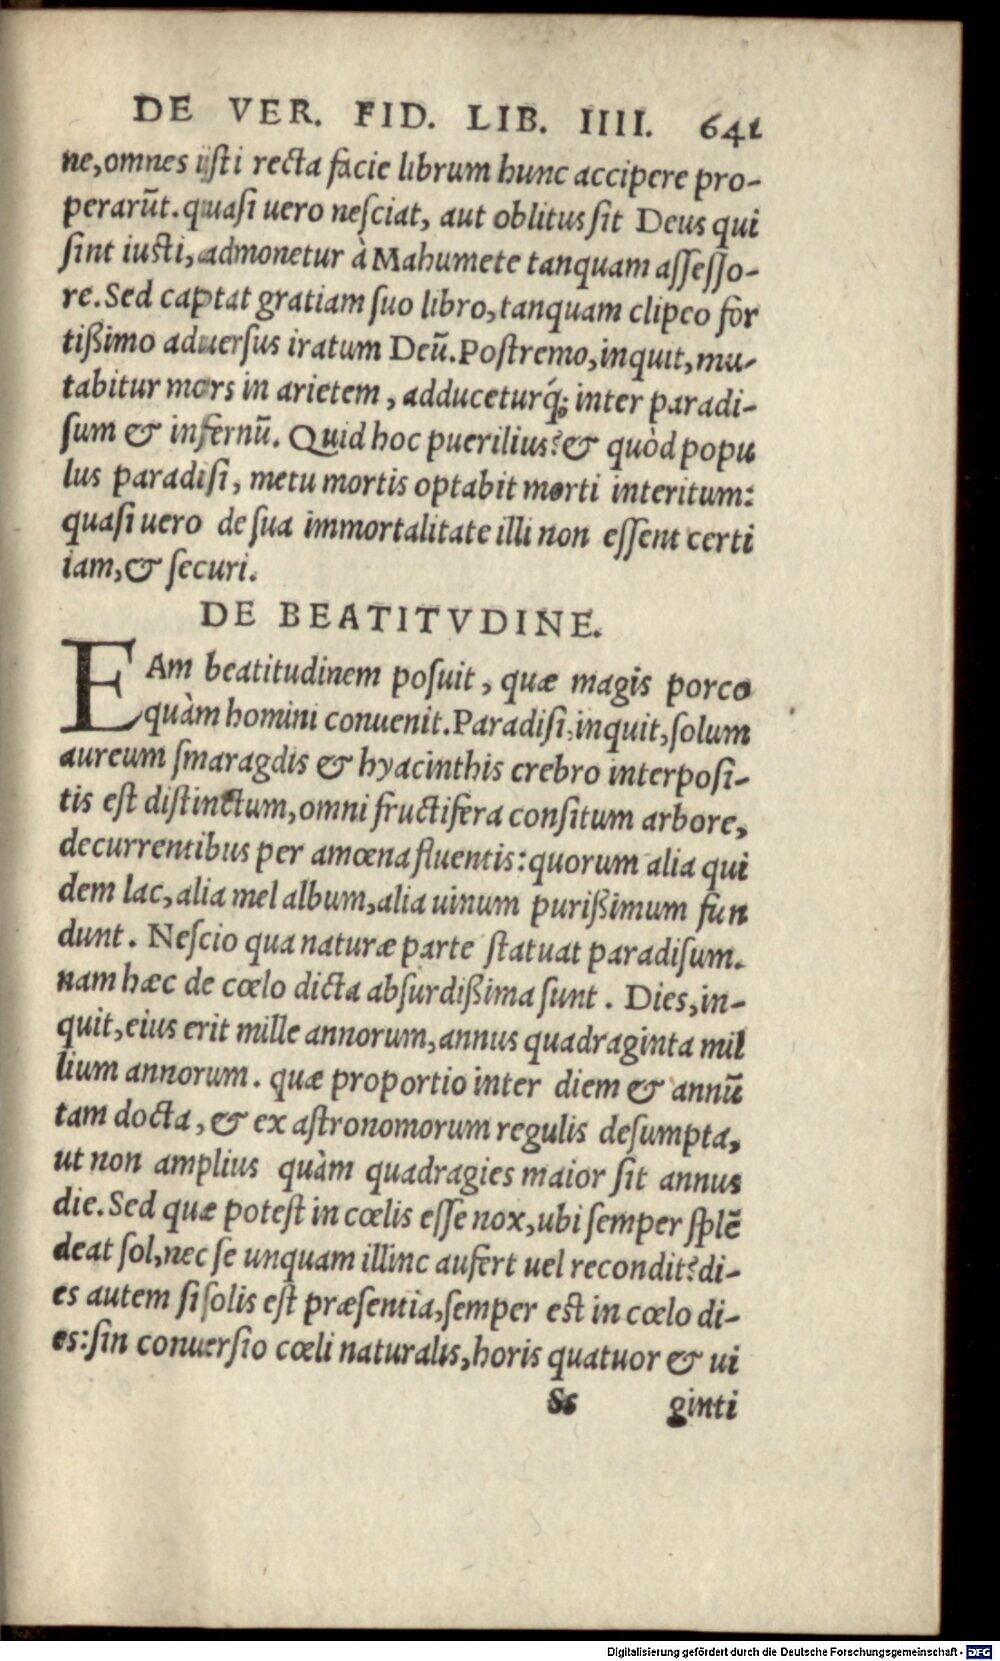 DE VER. FID. LIB. IIII. 641
ne, omnes iſti recta facie librum hunc accipere pro-
perarūt. quaſi uero neſciat, aut oblitus ſit Deus qui
ſint iuſti, admonetur à Mahumete tanquam aſſeſſo-
re. Sed captat gratiam ſuo libro, tanquam clipeo for
tißimo aduerſus iratum Deū. Poſtremo, inquit, mu-
tabitur mors in arietem, adduceturq́; inter paradi-
ſum & infernū. Quid hoc puerilius? & quòd popu
lus paradiſi, metu mortis optabit morti interitum:
quaſi uero de ſua immortalitate illi non eſſent certi
iam, & ſecuri.
DE BEATITVDINE.
EAm beatitudinem poſuit, quæ magis porco
quàm homini conuenit. Paradiſi, inquit, ſolum
aureum ſmaragdis & hyacinthis crebro interpoſi-
tis eſt diſtinctum, omni fructifera conſitum arbore,
decurrentibus per amœna fluentis: quorum alia qui
dem lac, alia mel album, alia uinum purißimum fun
dunt. Neſcio qua naturæ parte ſtatuat paradiſum.
nam hæc de cœlo dicta abſurdißima ſunt. Dies, in-
quit, eius erit mille annorum, annus quadraginta mil
lium annorum. quæ proportio inter diem & annū
tam docta, & ex aſtronomorum regulis deſumpta,
ut non amplius quàm quadragies maior ſit annus
die. Sed quæ poteſt in cœlis eſſe nox, ubi ſemper ſplē
deat ſol, nec ſe unquam illinc aufert uel recondit? di-
es autem ſi ſolis eſt præſentia, ſemper eſt in cœlo di-
es: ſin conuerſio cœli naturalis, horis quatuor & ui
Ss ginti
Digitalisierung gefördert durch die Deutsche Forschungsgemeinschaft - DFG